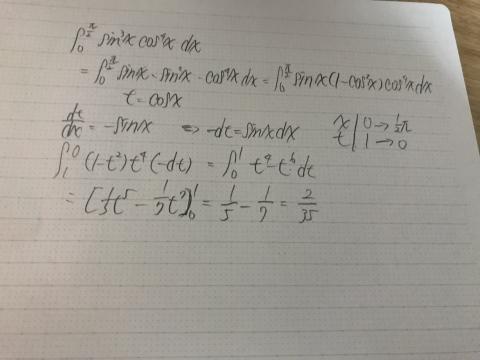 ∫₀^{π/2} sin³x cos⁴x dx
= ∫₀^{π/2} sinx · sin²x · cos⁴x dx = ∫₀^{π/2} sinx (1-cos²x) cos⁴x dx
t = cosx
dt/dx = -sinx ⇒ -dt = sinx dx x | 0 → ½π
t | 1 → 0
∫₁⁰ (1-t²) t⁴ (-dt) = ∫₀¹ t⁴ t⁶ dt
= [⅕t⁵ - 1/7 t⁷]₀¹ = 1/5 - 1/7 = 2/35